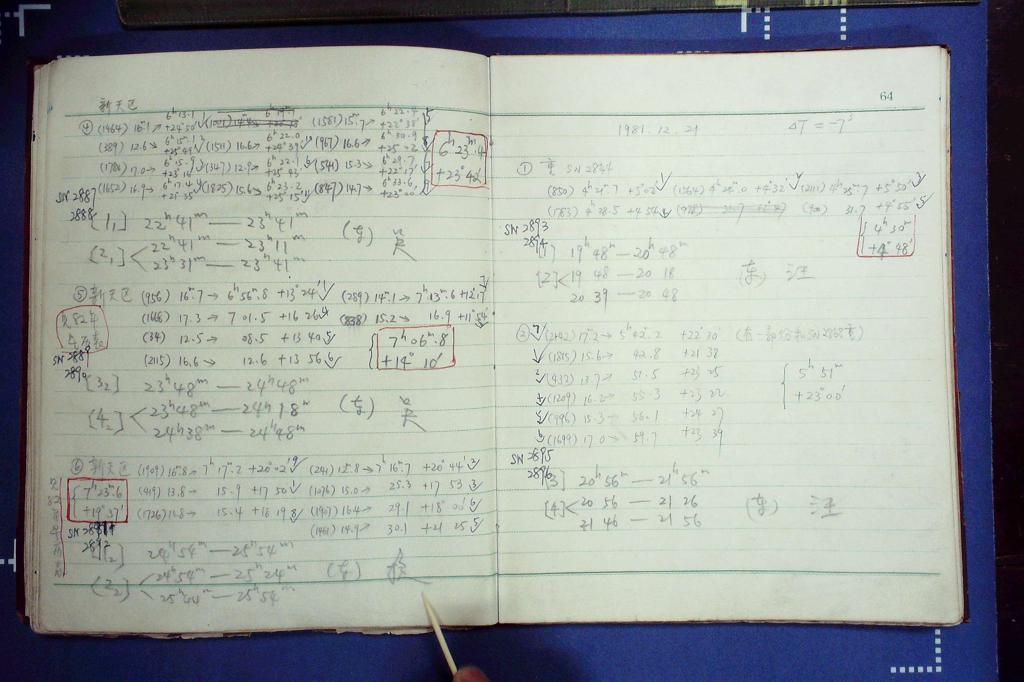 新天区
④ (1464) 16.1 → 6ʰ13.1 +24°50' (1021) (1581) 15.7 → 6ʰ22.4 +23°38'
(389) 12.6 → 6ʰ15.1 (1511) 16.6 → 6ʰ22.0 +24°39' (967) 16.6 → 6ʰ30.9
(1784) 17.0 → 6ʰ15.9 (347) 12.9 → 6ʰ22.1 +25°43' (541) 15.3 → 6ʰ29.7 +22°17'
(1652) 16.9 → 6ʰ17.4 (1825) 15.6 → 6ʰ23.2 +25°15' (847) 14.7 → 6ʰ33.6 +23°20'
6ʰ23ᵐ.4
+23°42'
SN 2887
2888
[1₁] 22ʰ41ᵐ — 23ʰ41ᵐ
[2₁] < 22ʰ41ᵐ — 23ʰ11ᵐ
23ʰ31ᵐ — 23ʰ41ᵐ
(东) 吴
⑤ 新天区 (956) 16ᵐ.7 → 6ʰ56ᵐ.8 +13°24' (289) 14ᵐ.1 → 7ʰ13ᵐ.6 +12°17'
(1668) 17.3 → 7 01.5 +16 26 (838) 15.2 → 16.9 +11°54'
(34) 12.5 → 08.5 +13 40.5
(2115) 16.6 → 12.6 +13 56.6
7ʰ06ᵐ.8
+14° 10'
SN 2889
2890
[3₂] 23ʰ48ᵐ — 24ʰ48ᵐ
[4₂] < 23ʰ48ᵐ — 24ʰ18ᵐ
24ʰ38ᵐ — 24ʰ48ᵐ
(东) 吴
⑥ 新天区 (1909) 16ᵐ.8 → 7ʰ17ᵐ.2 +20°02' (241) 15.8 → 7ʰ16ᵐ.7 +20°44'
(419) 13.8 → 15.9 +17 50 (1076) 15.0 → 25.3 +17 53
(1726) → 15.4 +18 19.8 (1907) 16.4 → 29.1 +18 00'
(1461) 14.9 → 30.1 +21 25
7ʰ23ᵐ.6
+19°57'
2892
24ʰ54ᵐ — 25ʰ54ᵐ
[2₂] < 24ʰ54ᵐ — 25ʰ24ᵐ
25ʰ44ᵐ — 25ʰ54ᵐ
(东)
64
1981.12.21 ΔT = -7ˢ
① 重 SN 2844
(850) 4ʰ21ᵐ.7 +5°02' (1564) 4ʰ24ᵐ.0 +4°32' (2111) 4ʰ25ᵐ.7 +5°50'
(1783) 4ʰ28.5 +4 54 31.7 +4°55'
4ʰ30ᵐ
+4°48'
SN 2893
2894
[1] 19ʰ48ᵐ — 20ʰ48ᵐ
[2] < 19 48 — 20 18
20 39 — 20 48
(东) 汪
② (2192) 17.2 → 5ʰ02ᵐ.2 +22°30' (有一部分和SN2868重)
(1815) 15.6 → 42.8 +21 38
(432) 13.7 → 51.5 +23 25
(1209) 16.2 → 55.3 +23 22
(996) 15.3 → 56.1 +24 27
(1699) 17.0 → 59.7 +23 39
5ʰ51ᵐ
+23°00'
SN 2895
2896
[3] 20ʰ56ᵐ — 21ʰ56ᵐ
[4] < 20 56 — 21 26
21 46 — 21 56
(东) 汪